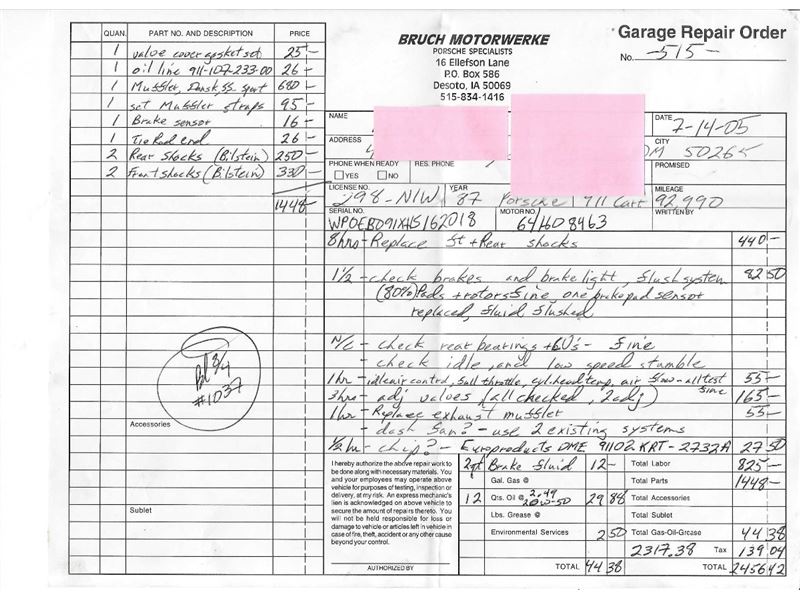 QUAN. PART NO. AND DESCRIPTION PRICE
1 valve cover gasket set 25 —
1 oil line 911-107-233-00 26 —
1 Muffler, Dansk, SS. sport 680 —
1 set Muffler straps 95 —
1 Brake sensor 16 —
1 Tie Rod end 26 —
2 Rear Shocks (Bilstein) 250 —
2 Front shocks (Bilstein) 330 —
1448 —
Bl 3/4
#1037
Accessories
Sublet
BRUCH MOTORWERKE
PORSCHE SPECIALISTS
16 Ellefson Lane
P.O. Box 586
Desoto, IA 50069
515-834-1416
Garage Repair Order
No. -515-
NAME
DATE 7-14-05
ADDRESS
CITY DM 50265
PHONE WHEN READY
YES NO
RES. PHONE
PROMISED
LICENSE NO. 298-NIW
YEAR 87 Porsche 911 Carr
MILEAGE 92,990
SERIAL NO. WPOEB091XHS162018
MOTOR NO. 64H08463
WRITTEN BY
8hrs - Replace ft + Rear shocks 440 —
1 1/2 - check brakes and brake light, flush system 82 50
(80%) Pads + rotors fine, one brake pad sensor
replaced, fluid flushed
N/C - check rear bearings + CV's - fine
- check idle, and low speed stumble
1hr - idle air control, full throttle, cyl. head temp, air flow - all test fine 55 —
3hrs - adj valves (all checked, 2 adj) 165 —
1hr - Replace exhaust muffler 55 —
- dash fan? - use 2 existing systems
1/2 hr - chip? - Europroducts DME 91102 KRT - 2732A 27 50
I hereby authorize the above repair work to
be done along with necessary materials. You
and your employees may operate above
vehicle for purposes of testing, inspection or
delivery, at my risk. An express mechanic's
lien is acknowledged on above vehicle to
secure the amount of repairs thereto. You
will not be held responsible for loss or
damage to vehicle or articles left in vehicle
in case of fire, theft, accident or any other cause
beyond your control.
AUTHORIZED BY
2qt Brake fluid 12 —
Gal. Gas @
12 Qts. Oil @ 2.49 20W-50 29 88
Lbs. Grease @
Environmental Services 2 50
TOTAL 44 38
Total Labor 825 —
Total Parts 1448 —
Total Accessories
Total Sublet
Total Gas-Oil-Grease 44 38
2317.38 Tax 139 04
TOTAL 2456 42